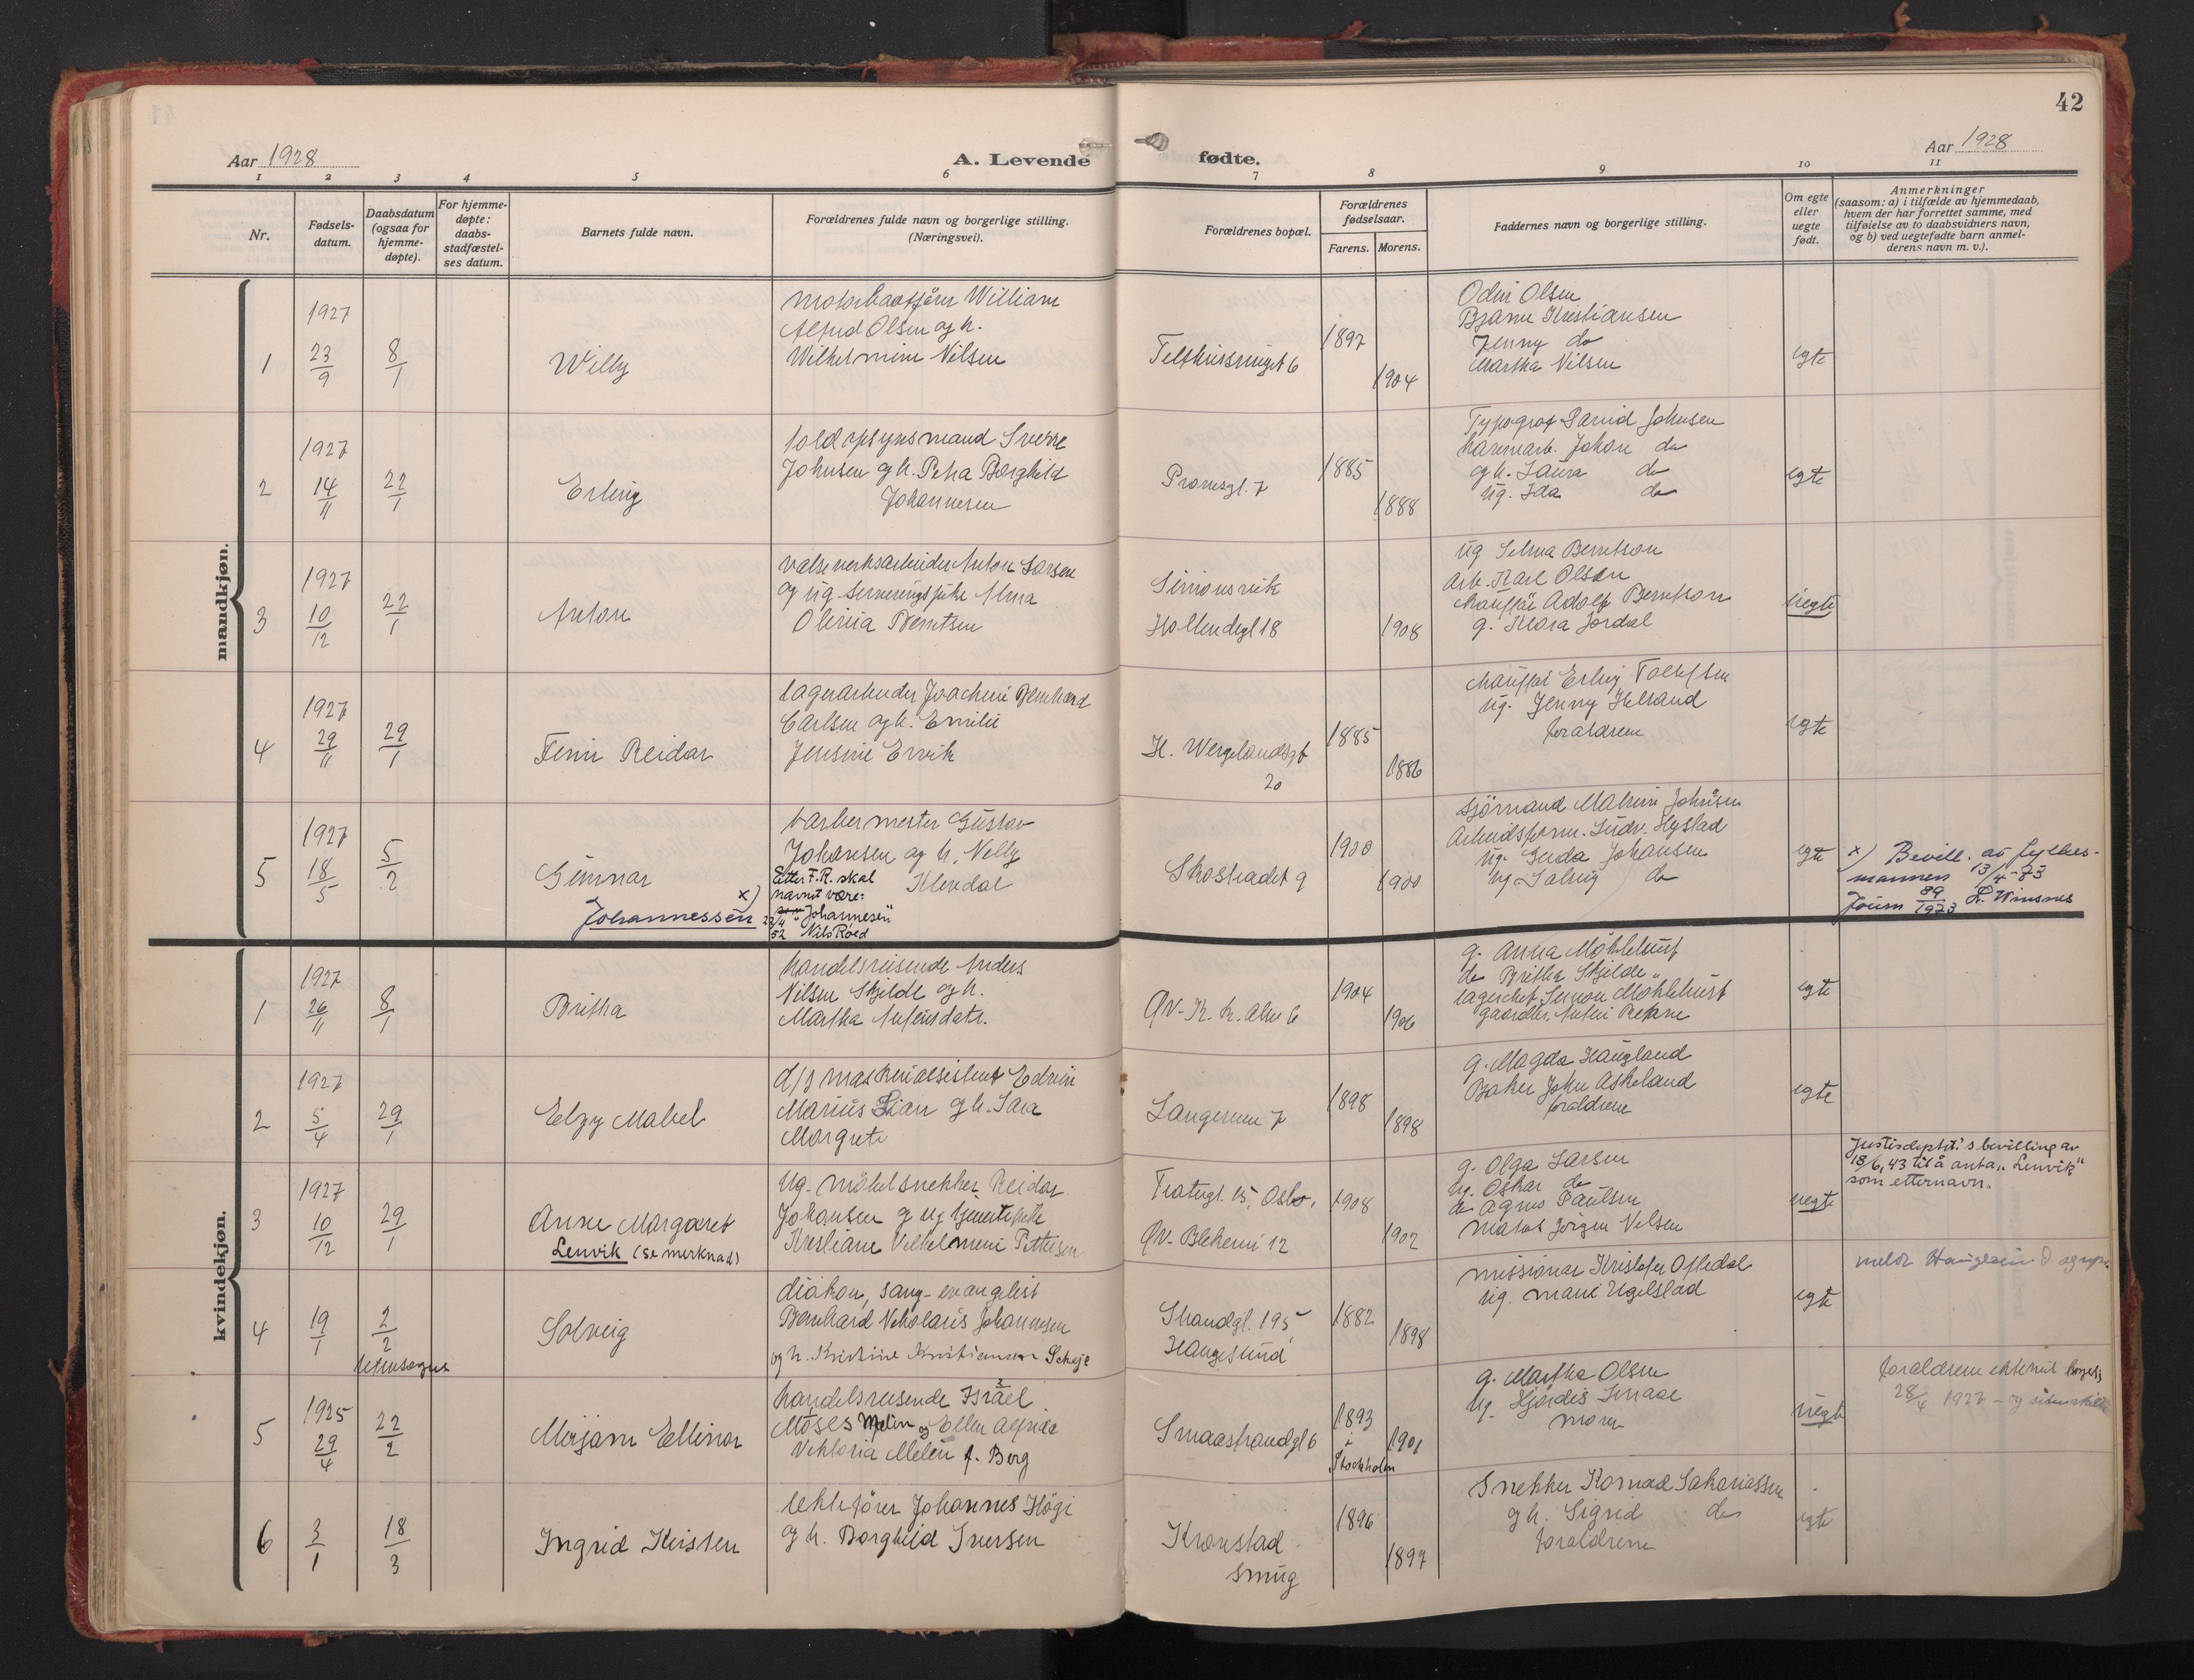 42
Aar 1928
A. Levende
fødte.
Aar 1928
1 2 3 4 5 6 7 8 9 10 11
Nr.
Fødsels-
datum.
Daabsdatum
(ogsaa for
hjemme-
døpte).
For hjemme-
døpte:
daabs-
stadfæstel-
ses datum.
Barnets fulde navn.
Forældrenes fulde navn og borgerlige stilling.
(Næringsvei).
Forældrenes bopæl.
Forældrenes
fødselsaar.
Farens. Morens.
Faddernes navn og borgerlige stilling.
Om egte
eller
uegte
født.
Anmerkninger
(saasom: a) i tilfælde av hjemmedaab,
hvem der har forrettet samme, med
tilføielse av to daabsvidners navn,
og b) ved uegtefødte barn anmel-
derens navn m. v.).
mandkjøn.
1
1927
23/9
8/1
Willy
William
Alfred Olsen og h.
Wilhelmine Nilsen
6
1897
1904
Odin Olsen
Bjarne Kristiansen
Jenny do
Martha Nilsen
egte
2
1927
14/11
22/1
Erling
toldopsynsmand Sverre
Johnsen og h. Petra Borghild
Johannesen
7
1885
1888
Typograf Johnsen
Johan do
og h. Laura do
ug. Ida do
egte
3
1927
10/12
22/1
Anton
valseverksarbeider Anton Larsen
og ug. serveringspike Alma
Olivia Berntsen
Simonsvik
Hollendergt 18
1908
ug Selma Berntson
arb. Karl Olsen
chauffør Adolf Berntson
g. Klara Jordal
uegte
4
1927
29/11
29/1
Finn Reidar
lagerarbeider Joachim Bernhard
Carlsen og h. Emilie
Jensine Ervik
H. Wergelandsgt
20
1885
1886
chauffør Erling Tollefsen
ug. Jenny Helland
forældrene
egte
5
1927
18/5
5/2
Gunnar
x)
Johannessen
barbermester Gustav
Johansen og h. Nelly
Klendal
Etter F.R. skal
navnet være:
"Johannesen"
22/4 52 Nils Røed
Skostrædet 9
1900
1900
sjömand Johnsen
Ludv. Hystad
ug. Gerda Johansen
ug Solveig do
egte
x) Bevill. av fylkes-
mannen 13/4-73
Journ 89/1973 Winsnes
kvindekjøn.
1
1927
26/11
8/1
Britha
handelsreisende Anders
Nilsen Skjelde og h.
Martha
6
1904
1906
g. Anna Möhlehurt
do Britha Skjelde
egte
2
1927
5/4
29/1
Elzy Mabel
d/s maskinassistent Edvin
Marius Lian og h. Sara
Margrete
7
1898
1898
g. Magda Haugland
Baker John Askeland
forældrene
egte
3
1927
10/12
29/1
Anne Margaret
Lenvik (se merknad)
Ug. möbelsnekker Reidar
Johansen og ug tjenestepike
Kristiane Vilhelmine Pettersen
15, Oslo,
12
1908
1902
g. Olga Larsen
ug. Oskar do
do Agnes Paulsen
Jörgen Nilsen
uegte
Justisdeptet's bevilling av
18/6, 43 til å anta "Lenvik"
som etternavn.
4
19/1
2/2
Solveig
diakon, sang-evangelist
Bernhard Nikolaus Johannesen
og h. Kristine Kristiansen Scheje
Strandgt. 195
Haugesund
1882
1898
missionær Kristofer Oftedal
ug. Marie Ugelstad
egte
5
1925
29/4
22/2
Mirjam Ellinor
handelsreisende Israel
Moses Melin og Ellen Alfrida
Viktoria Melin f. Berg
Smaastrandgt 6
1893
i
Stockholm
1901
g. Martha Olsen
ug. Hjördis
moren
uegte
28/4 1927
6
3/1
18/3
Ingrid Kirsten
Johannes Högi
og h. Borghild Iversen
Kronstad
smug
1896
1897
Snekker Konrad Sakariassen
og h. Sigrid do
forældrene
egte